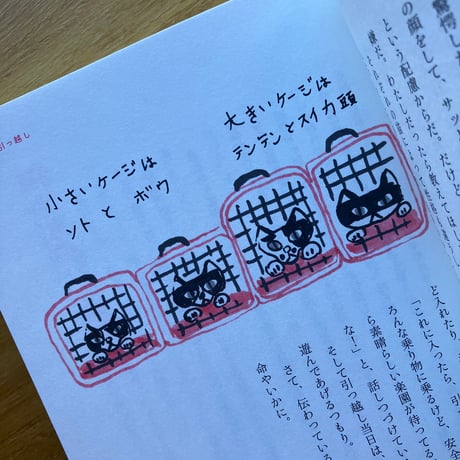 驚愕した
の顔をして、サッ
という配慮からだ。だけど
嫌だ。わたしだったら教えてほし
大きいケージは
テンテンとスイカ頭
小さいケージは
ソト と ボウ
引っ越し
ど入れたり、
「これに入ったら、
ろんな乗り物に乗るけど、安全
ら素晴らしい楽園が待ってる
な！」と、話しつづけてい
そして引っ越し当日は、
遊んであげるつもり。
さて、伝わっている
命やいかに。